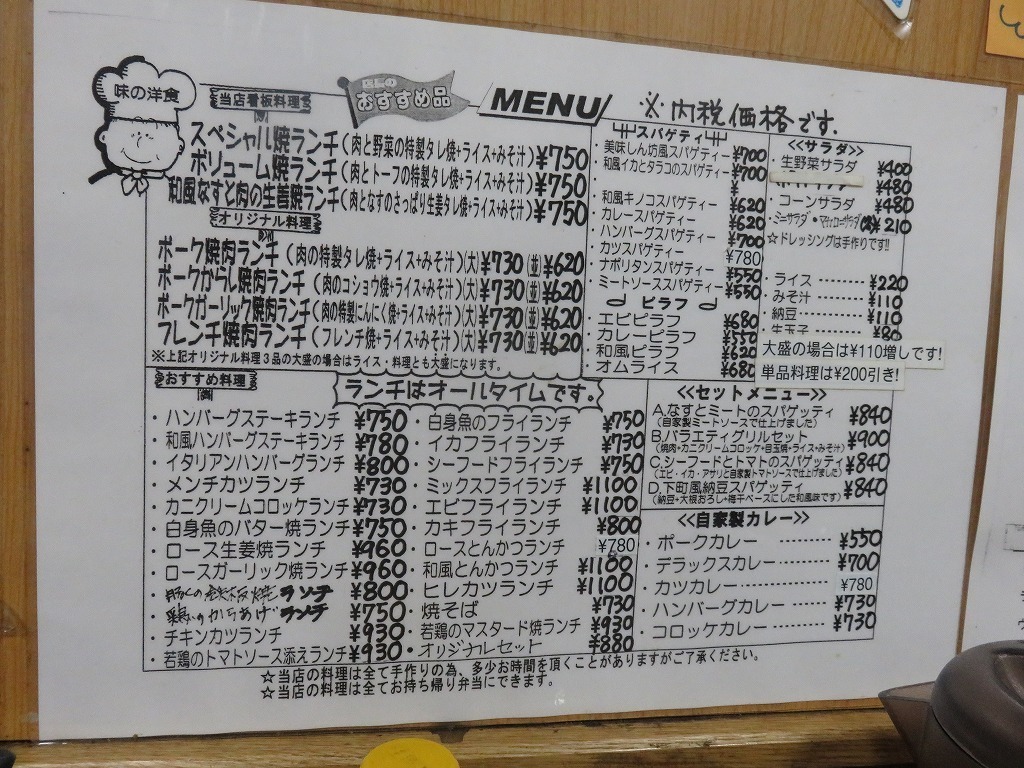 味の洋食
当店看板料理
店長の
おすすめ品
MENU
※内税価格です.
スペシャル焼ランチ(肉と野菜の特製タレ焼+ライス+みそ汁)¥750
ボリューム焼ランチ(肉とトーフの特製タレ焼+ライス+みそ汁)¥750
和風なすと肉の生姜焼ランチ(肉となすのさっぱり生姜タレ焼+ライス+みそ汁)¥750
オリジナル料理
ポーク焼肉ランチ(肉の特製タレ焼+ライス+みそ汁)(大)¥730(並)¥620
ポークからし焼肉ランチ(肉のコショウ焼+ライス+みそ汁)(大)¥730(並)¥620
ポークガーリック焼肉ランチ(肉の特製にんにく焼+ライス+みそ汁)(大)¥730(並)¥620
フレンチ焼肉ランチ(フレンチ焼+ライス+みそ汁)(大)¥730(並)¥620
※上記オリジナル料理3品の大盛の場合はライス・料理とも大盛になります。
スパゲティ
美味しん坊風スパゲティー ¥700
和風イカとタラコのスパゲティー ¥700
¥
和風キノコスパゲティー ¥620
カレースパゲティー ¥620
ハンバーグスパゲティー ¥700
カツスパゲティー ¥780
ナポリタンスパゲティー ¥550
ミートソーススパゲティー ¥550
ピラフ
エビピラフ ¥680
カレーピラフ ¥550
和風ピラフ ¥620
オムライス ¥680
<<サラダ>>
・生野菜サラダ ¥400
¥480
・コーンサラダ ¥480
¥210
☆ドレッシングは手作りです!!
・ライス ¥220
・みそ汁 ¥110
・納豆 ¥110
・生玉子 ¥80
大盛の場合は¥110増しです!
単品料理は¥200引き!
おすすめ料理
ランチはオールタイムです。
・ハンバーグステーキランチ ¥750
・和風ハンバーグステーキランチ ¥780
・イタリアンハンバーグランチ ¥800
・メンチカツランチ ¥730
・カニクリームコロッケランチ ¥730
・白身魚のバター焼ランチ ¥750
・ロース生姜焼ランチ ¥960
・ロースガーリック焼ランチ ¥960
・豚ヒレの鉄板焼ランチ ¥800
・鶏のからあげランチ ¥750
・チキンカツランチ ¥930
・若鶏のトマトソース添えランチ ¥930
・白身魚のフライランチ ¥750
・イカフライランチ ¥730
・シーフードフライランチ ¥750
・ミックスフライランチ ¥1100
・エビフライランチ ¥1100
・カキフライランチ ¥800
・ロースとんかつランチ ¥780
・和風とんかつランチ ¥1100
・ヒレカツランチ ¥1100
・焼そば ¥730
・若鶏のマスタード焼ランチ ¥930
・オリジナルセット ¥880
<<セットメニュー>>
A.なすとミートのスパゲッティ ¥840
(自家製ミートソースで仕上げました)
B.バラエティグリルセット ¥900
(焼肉+カニクリームコロッケ+目玉焼+ライス+みそ汁)
C.シーフードとトマトのスパゲッティ ¥840
(エビ・イカ・アサリと自家製トマトソースで仕上げました)
D.下町風納豆スパゲッティ ¥840
(納豆+大根おろし+梅干ベースにした和風味です)
<<自家製カレー>>
・ポークカレー ¥550
・デラックスカレー ¥700
・カツカレー ¥780
・ハンバーグカレー ¥730
・コロッケカレー ¥730
☆当店の料理は全て手作りの為、多少お時間を頂くことがありますがご了承ください。
☆当店の料理は全てお持ち帰り弁当にできます。